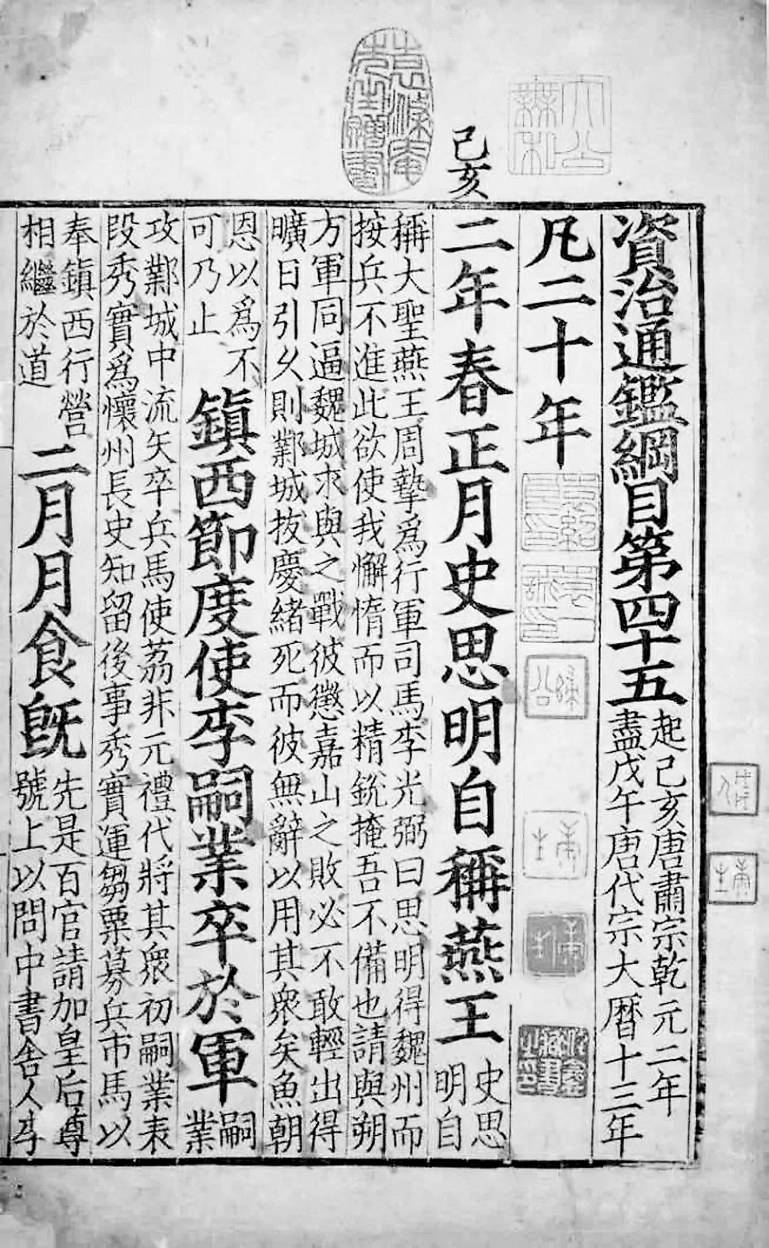 大公無私
資治通鑑綱目第四十五
起己亥唐肅宗乾元二年
盡戊午唐代宗大曆十三年
凡二十年
己亥
二年春正月史思明自稱燕王
史思
明自
稱大聖燕王周摯爲行軍司馬李光弼曰思明得魏州而
按兵不進此欲使我懈惰而以精銳掩吾不備也請與朔
方軍同逼魏城求與之戰彼懲嘉山之敗必不敢輕出得
曠日引久則鄴城拔慶緒死而彼無辭以用其衆矣魚朝
恩以爲不
可乃止
鎮西節度使李嗣業卒於軍
嗣
業
攻鄴城中流矢卒兵馬使荔非元禮代將其衆初嗣業表
段秀實爲懷州長史知留後事秀實運芻粟募兵市馬以
奉鎮西行營
相繼於道
二月月食旣
先是百官請加皇后尊
號上以問中書舍人李